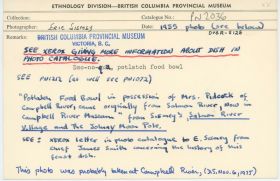 ETHNOLOGY DIVISION—BRITISH COLUMBIA PROVINCIAL MUSEUM
Collection Catalogue No.: PN 2036
Photographer: Eric Sismey 1955 photo (see below)
Remarks BRITISH COLUMBIA PROVINCIAL MUSEUM
VICTORIA, B.C.
SEE XEROX GIVING MORE INFORMATION ABOUT DISH IN
PHOTO CATALOGUE.
potlatch food bowl
SEE PN1212 (as well see PN1072)
"Potlatch Food Bowl in possession of Mrs. Pidcock of
Campbell River, came originally from Salmon River, now in
Campbell River Museum" from Sismey's Salmon River
Village and The Johnny Moon Pole.
SEE: Xerox Letter in photo catalogue to E. Sismey from
Chief James Smith concerning the history of this
feast dish.
This photo was probably taken at Campbell River, (J.S. Nov. 6, 1975)